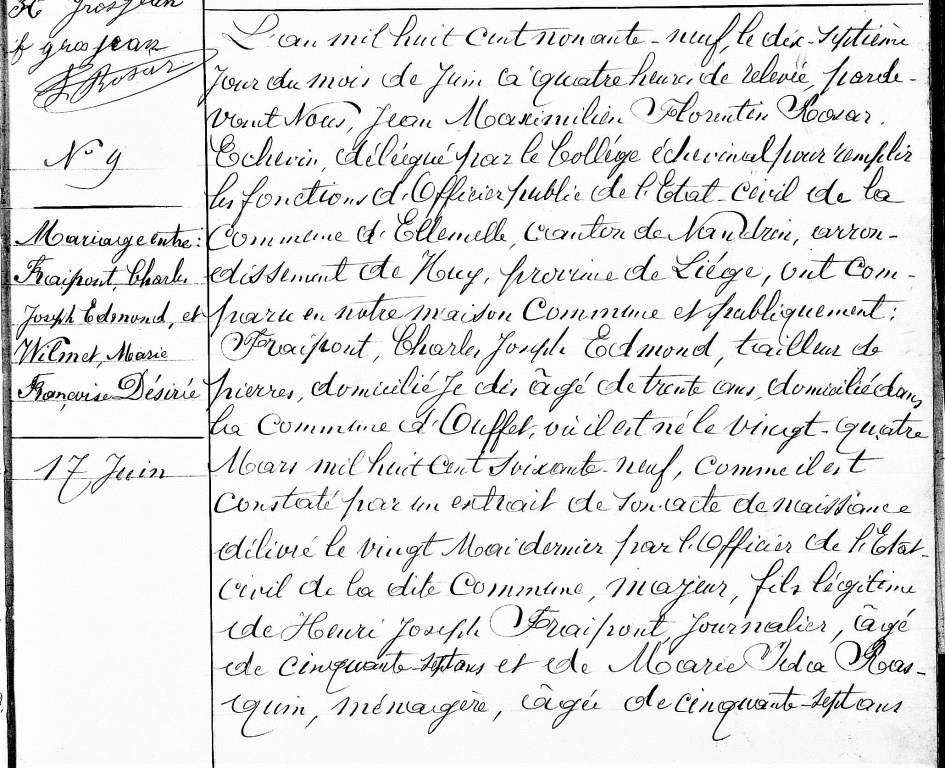 grosjean
f grosjean
Rosar
N° 9
Mariage entre:
Fraipont, Charles
Joseph Edmond, et
Wilmet, Marie
Françoise Désirié
17 Juin
L'an mil huit cent nonante-neuf, le dix-septième
jour du mois de Juin à quatre heures de relevée, parde-
vant Nous, Jean Maximilien Florentin Rosar.
Echevin, délégué par le Collége échevinal pour remplir
les fonctions d'Officier public de l'Etat-civil de la
Commune d'Ellemelle, canton de Nandrin, arron-
dissement de Huy, province de Liége, ont com-
paru en notre maison Commune et publiquement:
Fraipont, Charles Joseph Edmond, tailleur de
pierres, domicilié Je dis âgé de trente ans, domicilié dans
la Commune d'Ouffet, où il est né le vingt-quatre
Mars mil huit Cent Soixante-neuf, comme il est
constaté par un extrait de son acte de naissance
délivré le vingt Mai dernier par l'Officier de l'Etat-
civil de la dite Commune, majeur, fils légitime
de Henri Joseph Fraipont, Journalier, âgé
de cinquante-sept ans et de Marie Ida Ras-
quin, ménagère, âgée de cinquante-sept ans